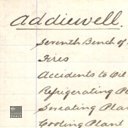 Addiewell.
Seventh Bench of
Fires
Accidents to Oil
Refrigerating Pl
Sweating Plan
Cooling Plant